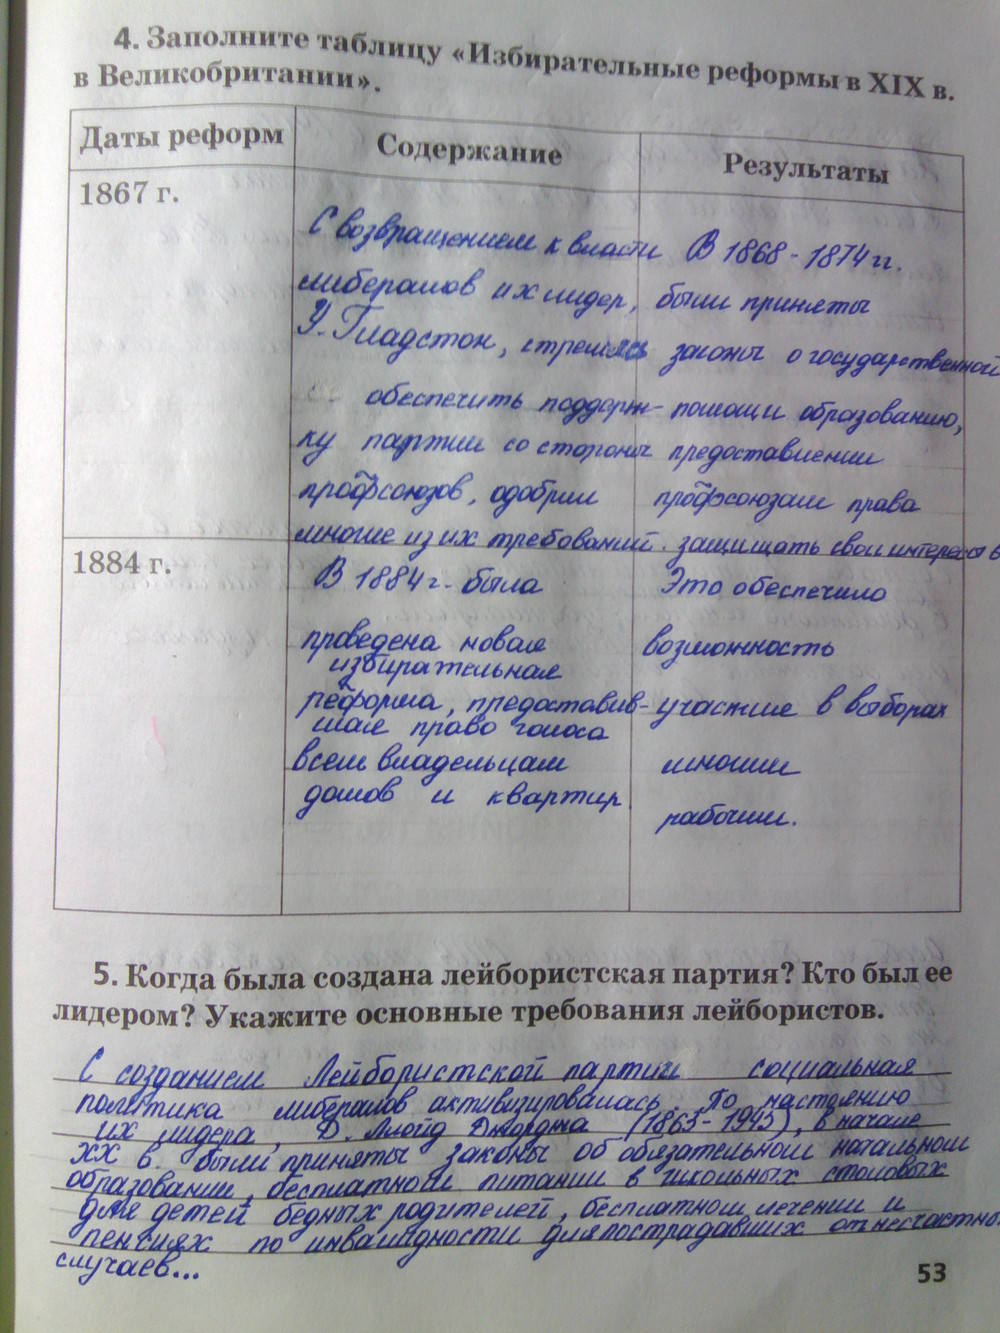 4. Заполните таблицу «Избирательные реформы в XIX в.
в Великобритании».
Даты реформ
Содержание
Результаты
1867 г.
С возвращением к власти
либералов их лидер,
У. Гладстон, стремясь
обеспечить поддерж-
ку партии со стороны
профсоюзов, одобрил
многие из их требований.
В 1868 - 1874 гг.
были приняты
законы о государственной
помощи образованию,
предоставлении
профсоюзам права
защищать свои интересы в
1884 г.
В 1884 г. была
проведена новая
избирательная
реформа, предоставив-
шая право голоса
всем владельцам
домов и квартир
Это обеспечило
возможность
участие в выборах
многим
рабочим.
5. Когда была создана лейбористская партия? Кто был ее
лидером? Укажите основные требования лейбористов.
С созданием Лейбористской партии социальная
политика либералов активизировалась. По настоянию
их лидера, Д. Ллойд Джорджа (1863-1945), в начале
XX в. были приняты законы об обязательном начальном
образовании, бесплатном питании в школьных столовых
для детей бедных родителей, бесплатном лечении и
пенсиях по инвалидности для пострадавших от несчастных
случаев...
53